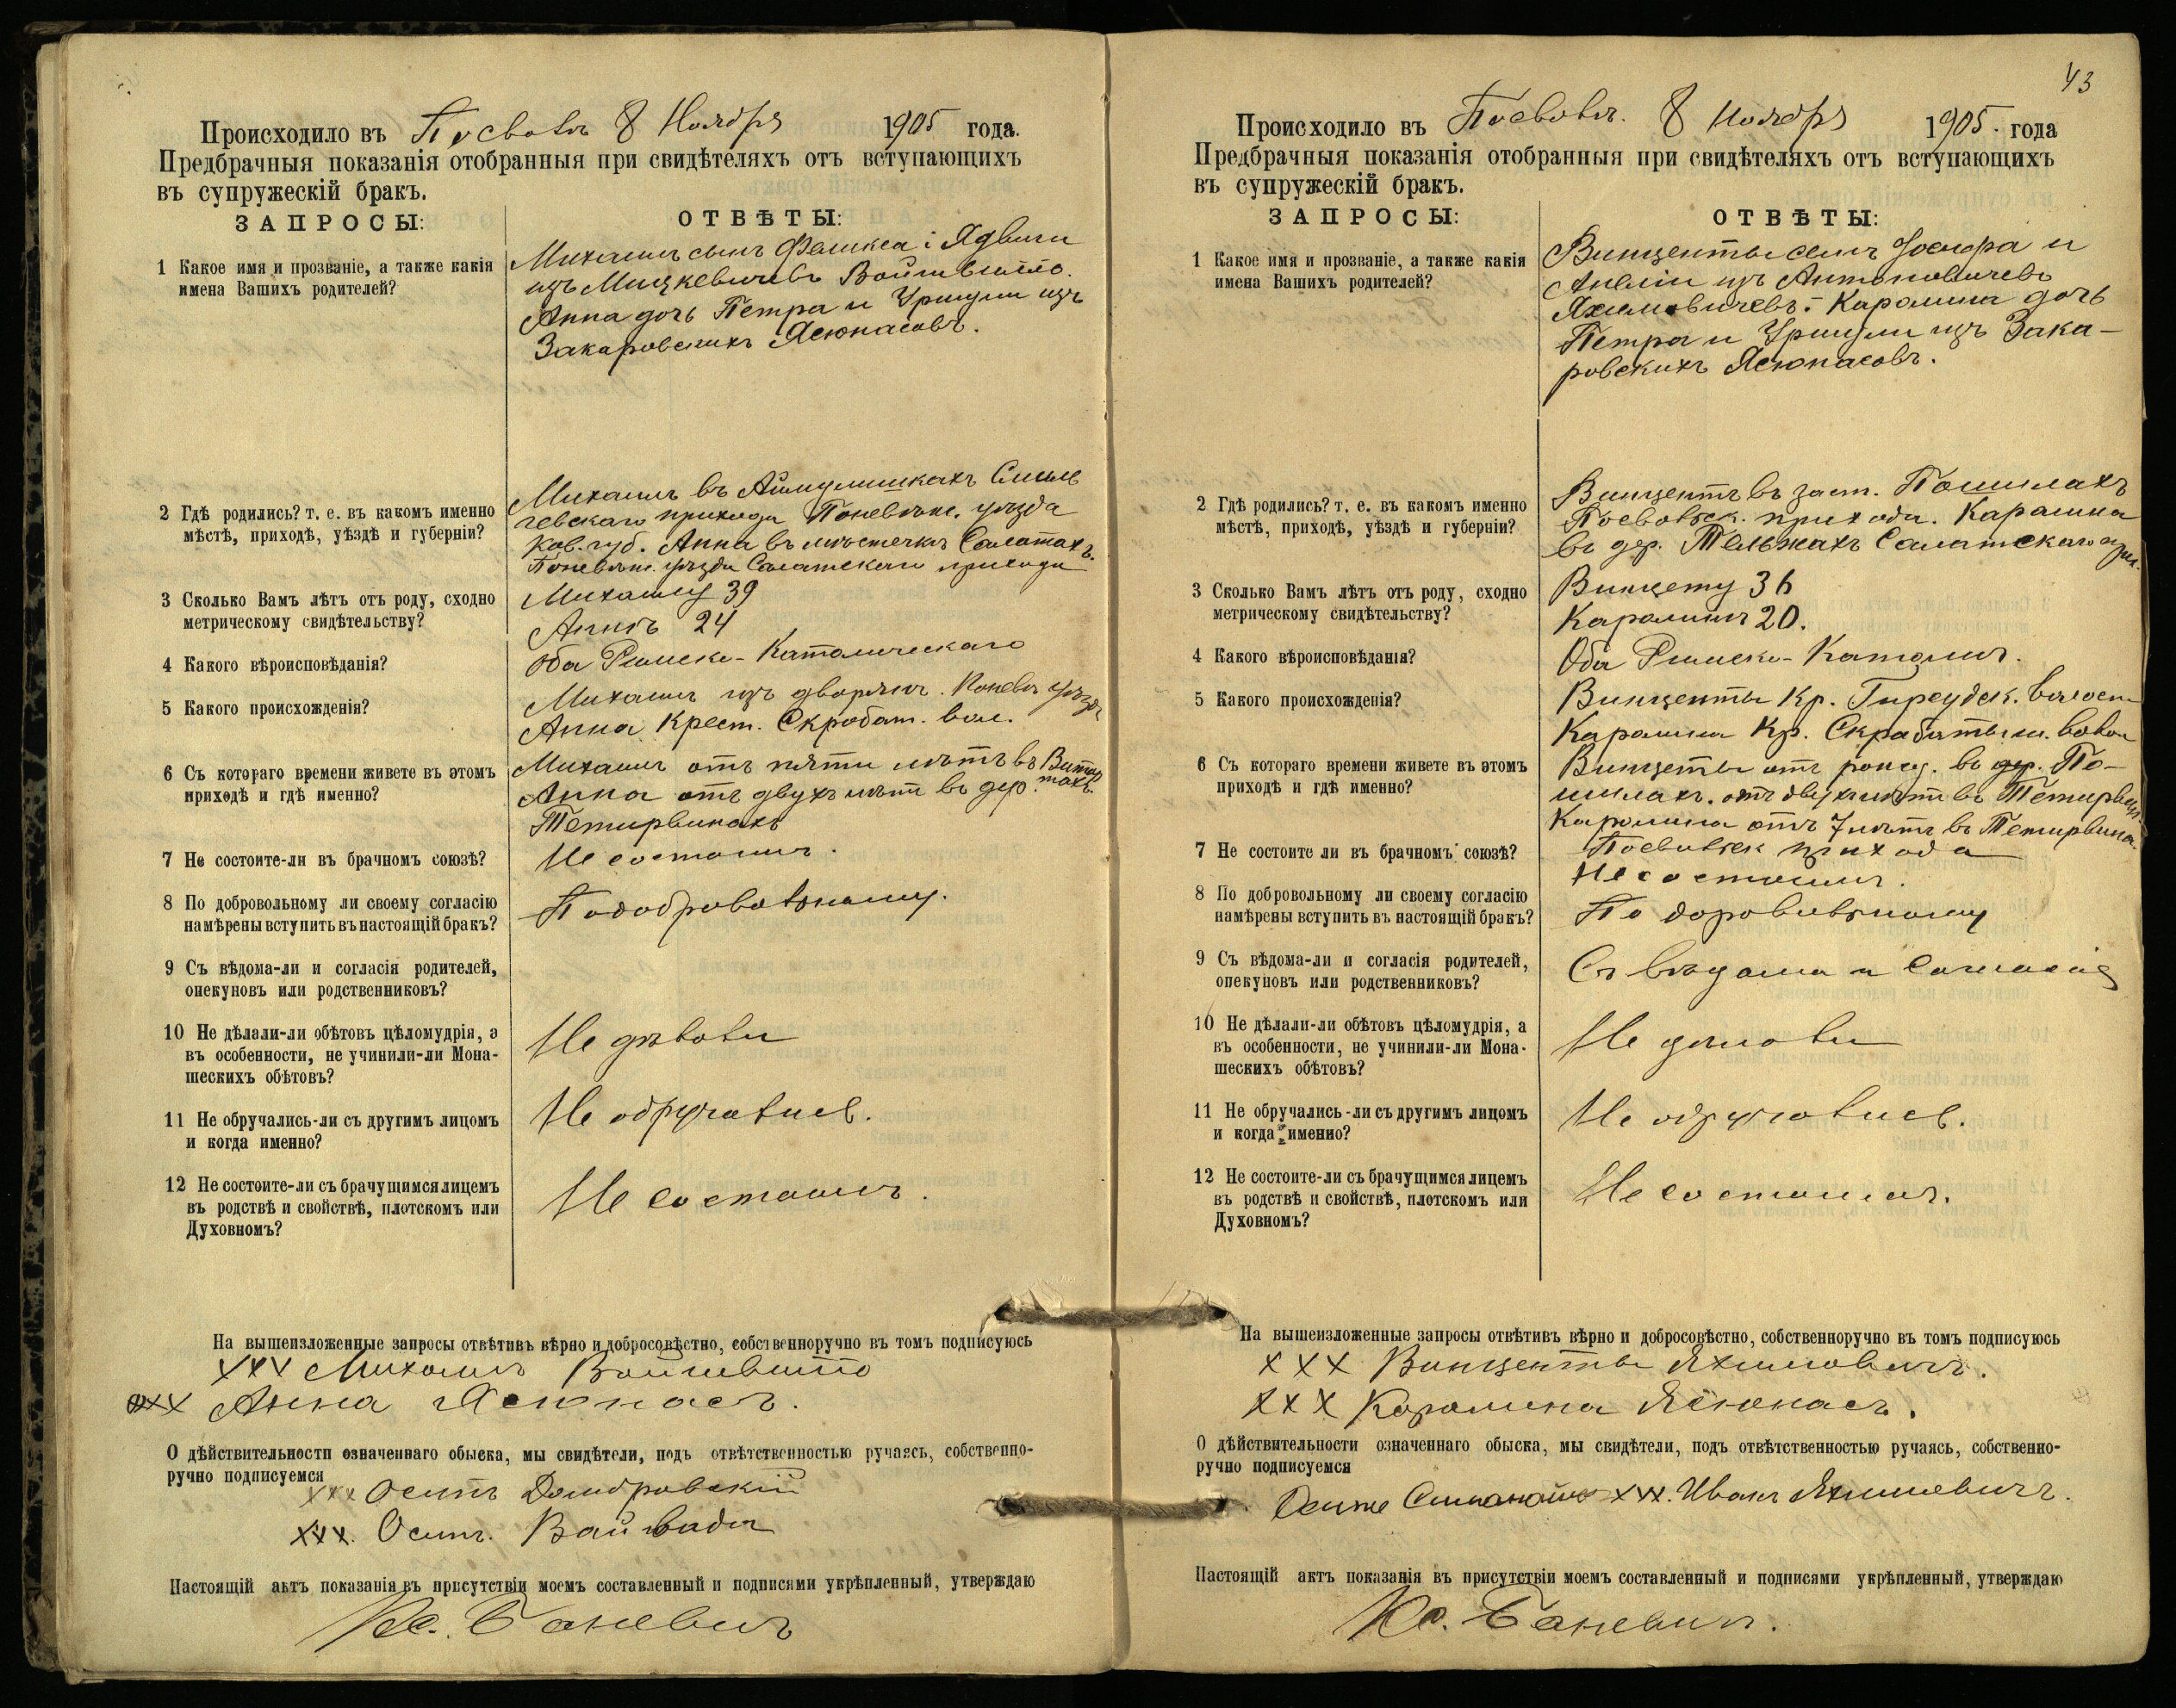 Происходило въ Посволѣ 8 Ноября 1905 года.
Предбрачныя показанія отобранныя при свидѣтеляхъ отъ вступающихъ
въ супружескій бракъ.
ЗАПРОСЫ:
ОТВѢТЫ:
1 Какое имя и прозваніе, а также какія
имена Вашихъ родителей?
Михаилъ сынъ Феликса і Ядвиги
изъ Мицкевичевъ Войшвилло.
Анна дочь Петра и Уршули изъ
Закаровскихъ Ясюнасовъ.
2 Гдѣ родились? т. е. въ какомъ именно
мѣстѣ, приходѣ, уѣздѣ и губерніи?
Михаилъ въ Смиль
гевскаго прихода Поневѣж. уѣзда
Ков. губ. Анна въ мѣстечкѣ Салатахъ
Поневѣж. уѣзда Салатскаго прихода
3 Сколько Вамъ лѣтъ отъ роду, сходно
метрическому свидѣтельству?
Михаилу 39
Аннѣ 24
4 Какого вѣроисповѣданія?
Оба Римско-Католическаго
5 Какого происхожденія?
Михаилъ изъ дворянъ. Понев. уѣзда
Анна Крест. Скробат. вол.
6 Съ котораго времени живете въ этомъ
приходѣ и гдѣ именно?
Михаилъ отъ пяти лѣтъ въ
Анна отъ двухъ лѣтъ въ дер.
Тетирвинахъ
7 Не состоите-ли въ брачномъ союзѣ?
Не состоимъ.
8 По добровольному ли своему согласію
намѣрены вступить въ настоящій бракъ?
По добровольному.
9 Съ вѣдома-ли и согласія родителей,
опекуновъ или родственниковъ?
10 Не дѣлали-ли обѣтовъ цѣломудрія, а
въ особенности, не учинили-ли Мона-
шескихъ обѣтовъ?
Не дѣлали
11 Не обручались-ли съ другимъ лицомъ
и когда именно?
Не обручались.
12 Не состоите-ли съ брачущимся лицемъ
въ родствѣ и свойствѣ, плотскомъ или
Духовномъ?
Не состоимъ.
На вышеизложенные запросы отвѣтивъ вѣрно и добросовѣстно, собственноручно въ томъ подписуюсь
XXX Михаилъ Войшвилло
XXX Анна Ясюнасъ.
О дѣйствительности означеннаго обыска, мы свидѣтели, подъ отвѣтственностью ручаясь, собственно-
ручно подписуемся
XXX Осипъ Домбровскій
XXX. Осипъ
Настоящій актъ показанія въ присутствіи моемъ составленный и подписями укрѣпленный, утверждаю
Кс. Баневичъ
43
Происходило въ Посволѣ. 8 Ноября 1905. года
Предбрачныя показанія отобранныя при свидѣтеляхъ отъ вступающихъ
въ супружескій бракъ.
ЗАПРОСЫ:
ОТВѢТЫ:
1 Какое имя и прозваніе, а также какія
имена Вашихъ родителей?
Винценты сынъ Іосифа и
Анеліи изъ Антоновичевъ
Яхимовичевъ. Каролина дочь
Петра и Уршули изъ Зака-
ровскихъ Ясюнасовъ.
2 Гдѣ родились? т. е. въ какомъ именно
мѣстѣ, приходѣ, уѣздѣ и губерніи?
Винцентъ въ заст. Пошилахъ
Посвольск. прихода. Каралина
въ дер. Салатскаго прих.
3 Сколько Вамъ лѣтъ отъ роду, сходно
метрическому свидѣтельству?
Винцету 36
Каролинѣ 20.
4 Какого вѣроисповѣданія?
Оба Римско-Католич.
5 Какого происхожденія?
Винценты Кр. волост
Каралина Кр.
6 Съ котораго времени живете въ этомъ
приходѣ и гдѣ именно?
Винценты отъ рожд. въ дер. По-
шилахъ. отъ двухъ лѣтъ въ
Каролина отъ 7 лѣтъ въ Тетирвина.
Посвольск прихода
7 Не состоите ли въ брачномъ союзѣ?
Не состоимъ.
8 По добровольному ли своему согласію
намѣрены вступить въ настоящій бракъ?
По доровольному
9 Съ вѣдома-ли и согласія родителей,
опекуновъ или родственниковъ?
Съ вѣдома и Согласія
10 Не дѣлали-ли обѣтовъ цѣломудрія, а
въ особенности, не учинили-ли Мона-
шескихъ обѣтовъ?
Не дѣлали
11 Не обручались-ли съ другимъ лицомъ
и когда именно?
Не обручались.
12 Не состоите-ли съ брачущимся лицемъ
въ родствѣ и свойствѣ, плотскомъ или
Духовномъ?
Не состоимъ.
На вышеизложенные запросы отвѣтивъ вѣрно и добросовѣстно, собственноручно въ томъ подписуюсь
XXX Винценты Яхимовичъ.
XXX Каролина Ясюнасъ.
О дѣйствительности означеннаго обыска, мы свидѣтели, подъ отвѣтственностью ручаясь, собственно-
ручно подписуемся
XXX. Иванъ Яхимовичъ.
Настоящій актъ показанія въ присутствіи моемъ составленный и подписями укрѣпленный, утверждаю
Кс. Баневичъ.